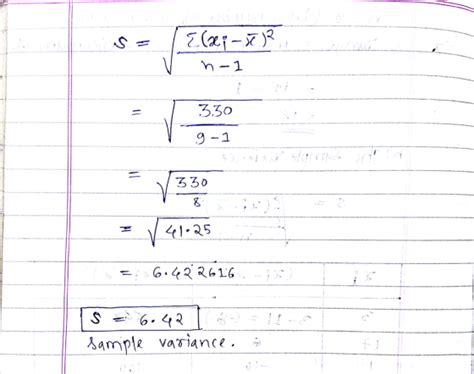 S = √(Σ(xi - x̄)² / n-1)
= √(330 / 9-1)
= √(330 / 8)
= √41.25
= 6.422616
S = 6.42
Sample variance.